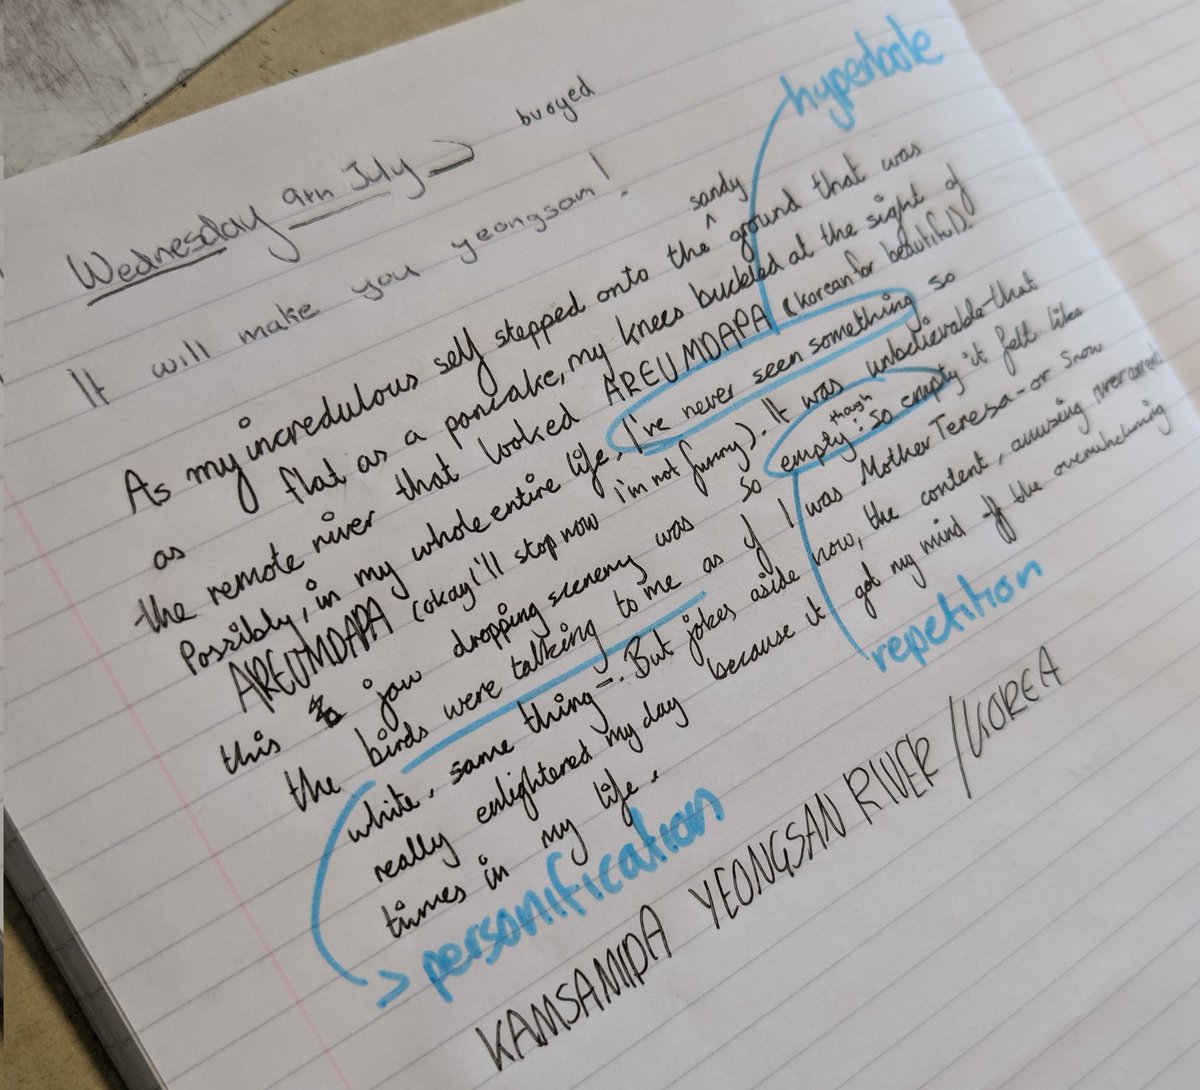 buoyed
Wednesday 9th July
It will make you yeongsan!
hyperbole
As my incredulous self stepped onto the sandy ground that was
as flat as a pancake, my knees buckled at the sight of
the remote river that looked AREUMDAPA (korean for beautiful).
Possibly, in my whole entire life, I've never seen something so
AREUMDAPA (okay i'll stop now i'm not funny). It was unbelievable-that
this jaw dropping scenery was so empty: though so empty it felt like
the birds were talking to me as if I was Mother Teresa-or Snow
white, same thing-. But jokes aside now, the content, amusing
really enlightered my day because it got my mind off the overwhelming
times in my life.
repetition
personification
KAMSAMIDA YEONGSAN RIVER/KOREA